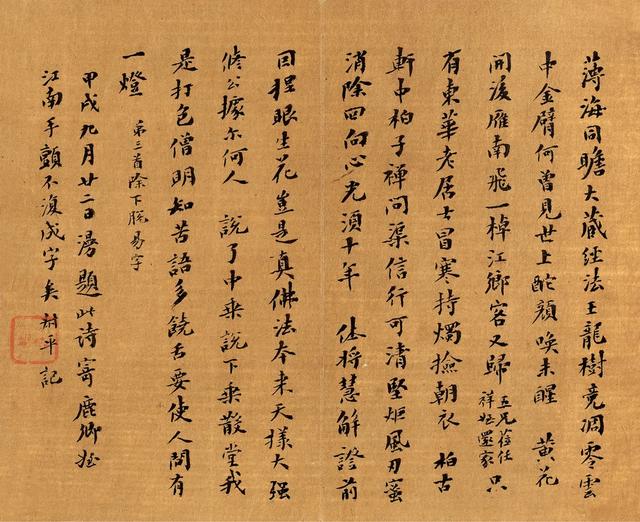 薄海同瞻大藏經法王龍樹竟凋零雲
中金臂何曾見世上酡顏喚未醒 黃花
開後雁南飛一棹江鄉客又歸五兄徐任祥姪還家只
有東華老居士冒寒持燭撿朝衣 柏古
軒中柏子禪問渠信行可清堅炬風刃蜜
消除四向心光須十年 休將慧解證前
因捏眼生花豈是真佛法本來天樣大强
修公據尔何人 說了中乘說下乘散堂我
是打包僧明知苦語多饒舌要使人間有
一燈 第三首除下脫易字
甲戌九月廿二日漫題此詩寄鹿卿姪
江南手顫不復成字矣 叔平記